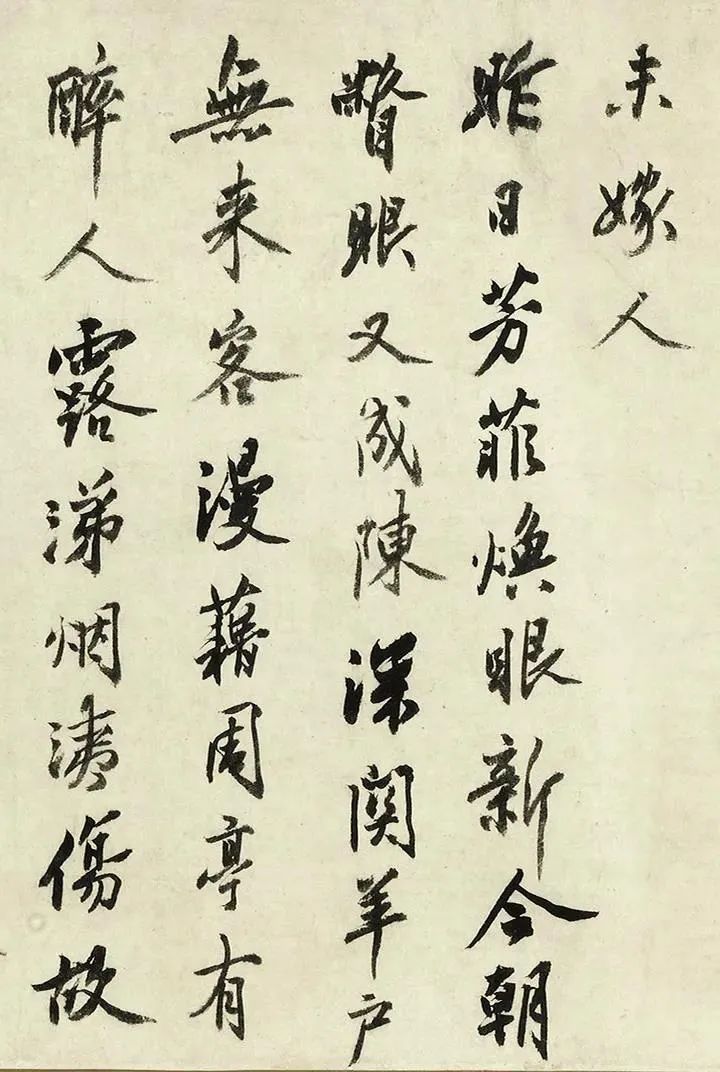 未嫁人
昨日芳菲煥眼新今朝
瞥眼又成陳深関羊户
無来客漫藉周亭有
醉人露涕烟洟傷故